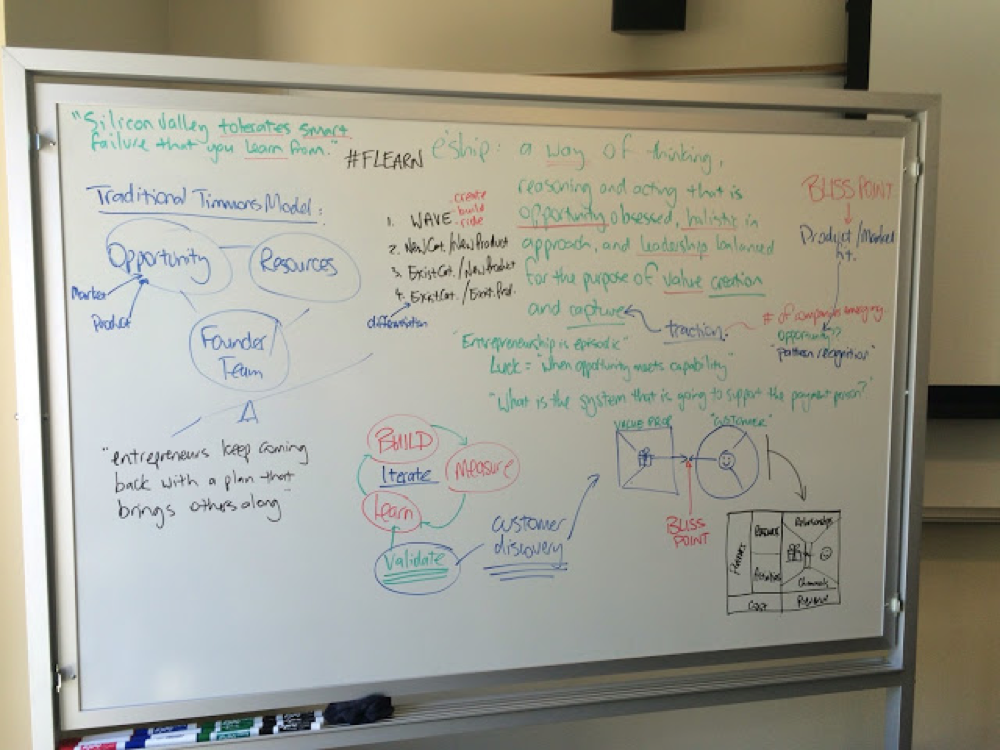 "Silicon Valley tolerates smart
failure that you learn from."
#FLEARN
e'ship: a way of thinking,
reasoning and acting that is
opportunity obsessed, holistic in
approach, and leadership balanced
for the purpose of value creation
and capture
traction.
BLISS POINT
Product/Market
fit.
# of companies emerging
opportunity??
"pattern recognition"
Traditional Timmons Model:
Opportunity
Resources
Market
Product
Founder/
Team
"entrepreneurs keep coming
back with a plan that
brings others along"
1. WAVE
create
build
ride
2. New Cat./New Product
3. Exist Cat./New Product
4. Exist Cat./Exist. Prod.
differentiation
"Entrepreneurship is episodic"
Luck = "when opportunity meets capability"
"What is the system that is going to support the payment person?"
BUILD
Iterate
Measure
Learn
Validate
customer
discovery
VALUE PROP
"CUSTOMER"
BLISS
POINT
Partners
Resources
Activities
Relationships
Channels
Cost
Revenue